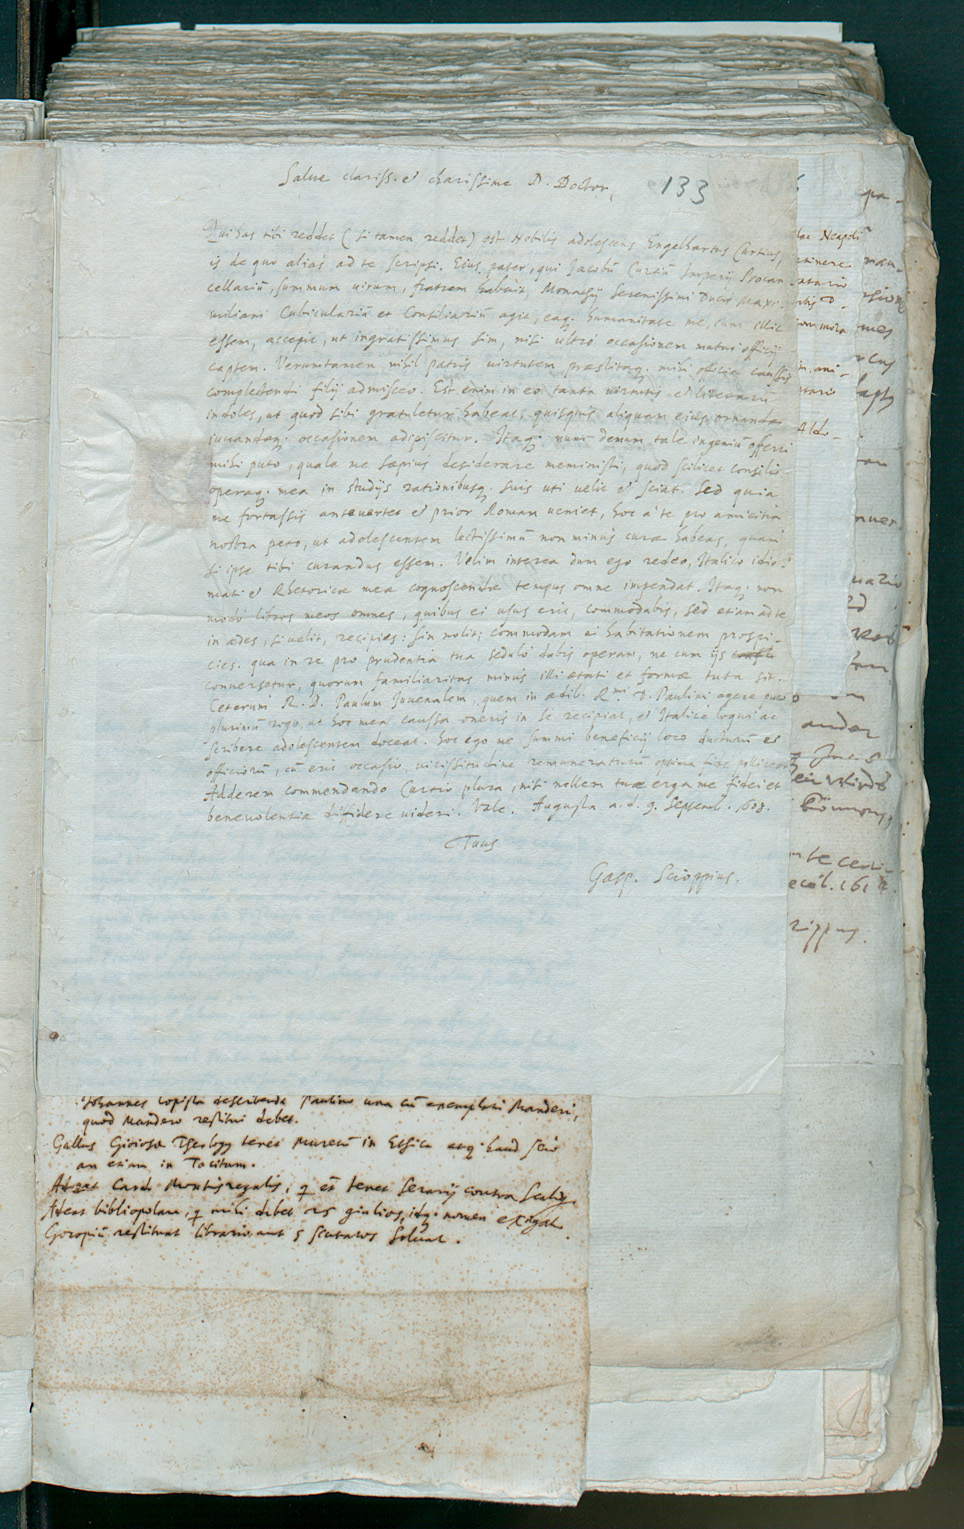 Salue clariss. et charissime D. Doctor,
133
Qui has tibi reddet (si tamen reddet) est Nobilis adolescens Engelhartus Curtius,
is de quo alias ad te scripsi. Eius pater, qui Jacobū Curtiū Imperij Procan-
cellariū, summum uirum, fratrem habuit, Monachij Serenissimi Ducis Maxi-
miliani Cubiculariū et Consiliariū agit, eaq. humanitate me, cum illic
essem, accepit, ut ingratissimus sim, nisi ultrò occasionem mutui officij
captem. Verumtamen nihil patris uirtutem praestitaq. mihi officia caussis
complectendi filij admisceo. Est enim in eo tanta uirtutis et literarū
indoles, ut quod sibi gratuletur habeat, quisquis aliquam eius ornandi
iuuandiq. occasionem adipiscitur. Itaq. nunc demum tale ingeniū offerri
mihi puto, quale me saepius desiderare meministi, quod scilicet consilio
operaq. mea in studijs rationibusq. suis uti uelit et sciat. Sed quia
me fortassis anteuertet et prior Romam ueniet, hoc à te pro amicitia
nostra peto, ut adolescentem lectissimū non minùs curae habeas, quam
si ipse tibi curandus essem. Velim interea dum ego redeo, Italico idio-
mati et Rhetoricae meae cognoscendae tempus omne impendat. Itaq. non
modò libros meos omnes, quibus ei usus erit, commodabis, sed etiam ad te
in aedes, si uelit, recipies: sin nolit, commodam ei habitationem prospi-
cies. qua in re pro prudentia tua sedulò dabis operam, ne cum ijs
conuersetur, quorum familiaritas minùs illi aetati et formae tuta sit.
Ceterum R. D. Paulum Juuenalem, quem in aedib. R.mi D. Paulini agere puto
plurimū rogo, ut hoc mea caussa oneris in se recipiat, et Italicè loqui ac
scribere adolescentem doceat. hoc ego me summi beneficij loco ducturū et
officiorū, cū erit occasio, uicissitudine remuneraturū optima fide polliceor.
Adderem commendando Curtio plura, nisi nollem tuae erga me fidei et
beneuolentiae diffidere uideri. Vale. Augusta a. d. 9. Septemb. 1608.
Tuus
Gasp. Scioppius.
Johannes Copista describenda Paulino una cū exemplari Manderi,
quod Mandero restitui debet.
Gallus Theology tenet Muretū in Ethica atq. haud scio
an etiam in Tacitum.
Card. Montisregalis, q et tenet Serarij contra Scalig.
bibliopolam, q mihi debet 25 giulios, idq. nomen exigat.
Goropiū restituat librario, aut 5 scutatos soluat.